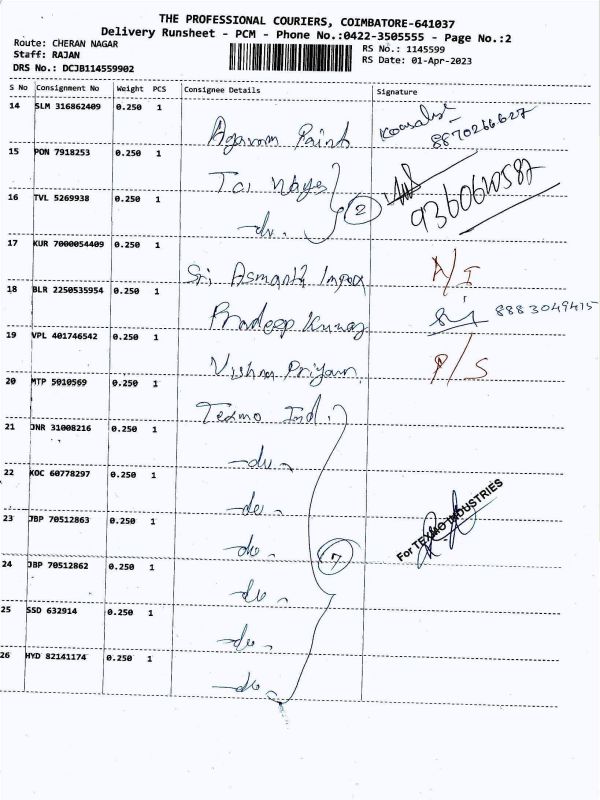 THE PROFESSIONAL COURIERS, COIMBATORE-641037
Delivery Runsheet - PCM - Phone No.:0422-3505555 - Page No.:2
Route: CHERAN NAGAR
Staff: RAJAN
DRS No.: DCJB114559902
RS No.: 1145599
RS Date: 01-Apr-2023
S No Consignment No Weight PCS Consignee Details Signature
14 SLM 316862409 0.250 1 Agarwam Paint 8870266627
15 PON 7918253 0.250 1
16 TVL 5269938 0.250 1 -do- 2 9360610587
17 KUR 7000054409 0.250 1 Sri Asmanth Impex A/I
18 BLR 2250535954 0.250 1 Pradeep Kumar 8883049415
19 VPL 401746542 0.250 1 Vishnu Priyan P/S
20 MTP 5010569 0.250 1 Texmo Ind.
21 JNR 31008216 0.250 1 -do-
22 KOC 60778297 0.250 1 -do-
23 JBP 70512863 0.250 1 -do- 7 For TEXMO INDUSTRIES
24 JBP 70512862 0.250 1 -do-
25 SSD 632914 0.250 1 -do-
26 HYD 82141174 0.250 1 -do-